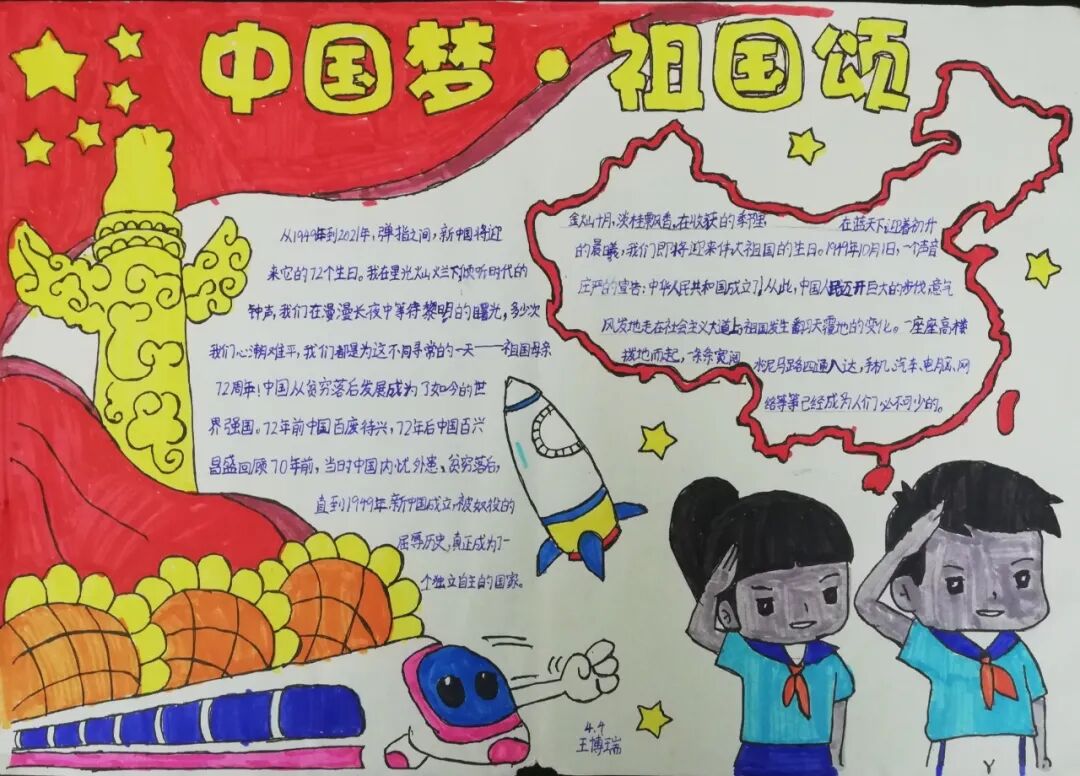 中国梦·祖国颂
从1949年到2021年，弹指之间，新中国将迎
来它的72个生日。我在星光灿烂下倾听时代的
钟声，我们在漫漫长夜中等待黎明的曙光，多少次
我们心潮难平，我们都是为这不同寻常的一天——祖国母亲
72周年！中国从贫穷落后发展成为了如今的世
界强国。72年前中国百废待兴，72年后中国百兴
昌盛回顾70年前，当时中国内忧外患，贫穷落后，
直到1949年，新中国成立，被奴役的
屈辱历史，真正成为了一
个独立自主的国家。
金火山十月，淡桂飘香，在收获的季里 在蓝天下，迎着初升
的晨曦，我们即将迎来伟大祖国的生日。1949年10月1日，一个声音
庄严的宣告：中华人民共和国成立了！从此，中国人民迈开巨大的步伐，意气
风发地走在社会主义大道上，祖国发生翻天覆地的变化。一座座高楼
拔地而起，一条条宽阔 水泥马路四通八达，手机、汽车、电脑、网
络等等已经成为人们必不可少的。
4.4
王博瑞